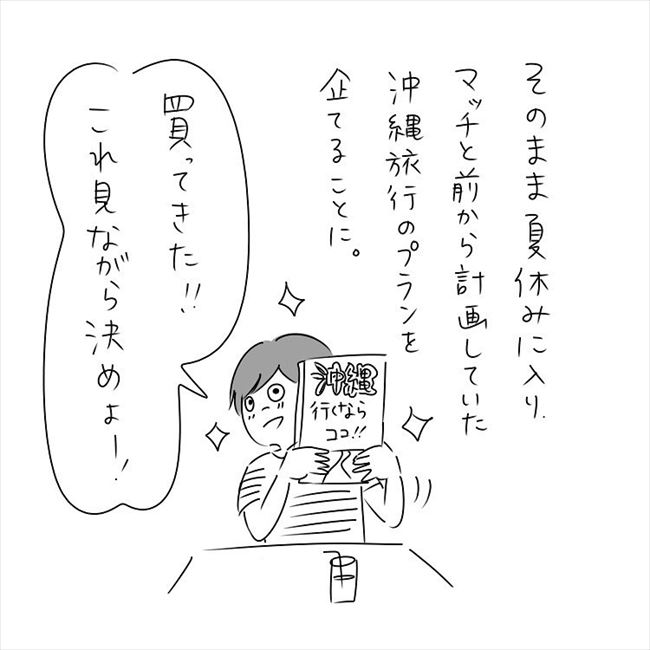 そのまま夏休みに入り、
マッチと前から計画していた
沖縄旅行のプランを
企てることに。
買ってきた!!
これ見ながら決めよー!
沖縄
行くなら
ココ!!